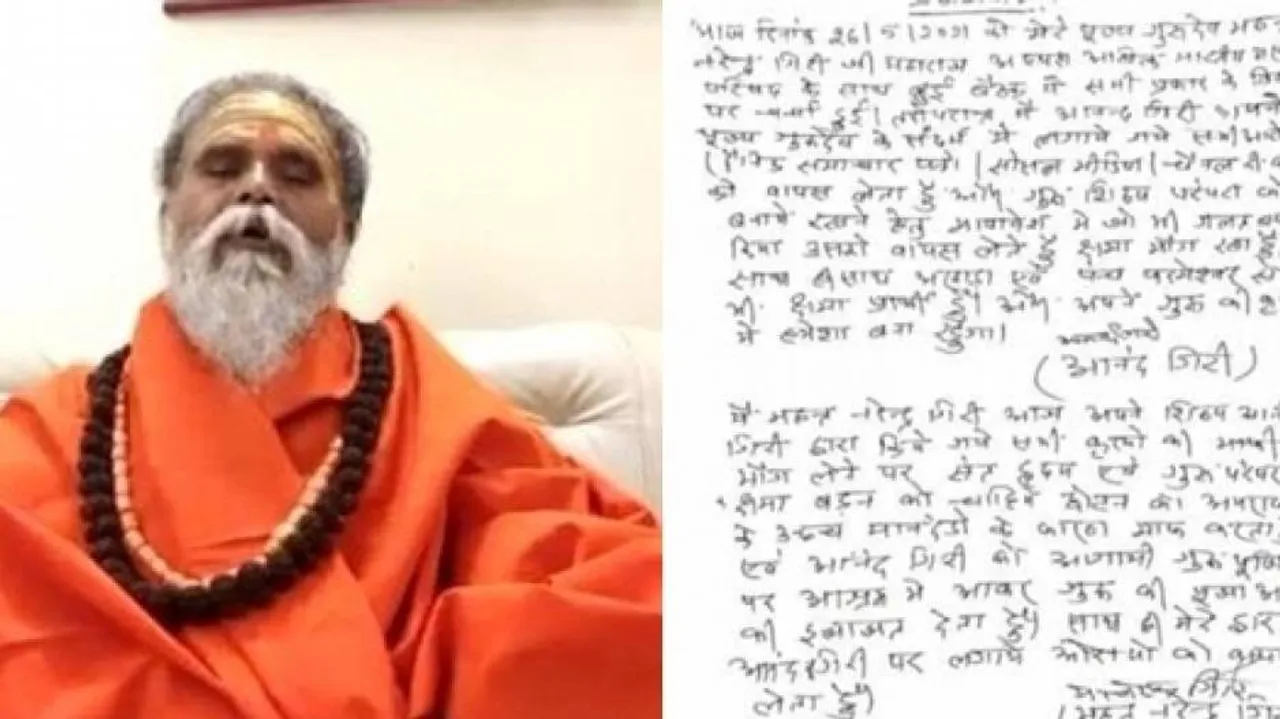 आज दिनांक 26/5/2021 को मेरे पूज्य गुरूदेव महन्
नरेन्द्र गिरी जी महाराज अध्यक्ष अखिल भारतीय
परिषद के साथ हुई बैठक में सभी प्रकार के
पर चर्चा हुई। तत्पश्चात मैं आनन्द गिरी अपने
पूज्य गुरूदेव के संदर्भ में लगाये गये सभी
समाचार पत्रो सोसल मीडिया
को वापस लेता हूँ और गुरू शिष्य परंपरा को
बनाये रखने हेतु भावावेश मे जो भी गलत
दिया उसको वापस लेते हुँ क्षमा माँग रहा हूँ
साथ ही साथ अखाड़ा एवं पंच परमेश्वर से
भी क्षमा प्रार्थी हूँ। और अपने गुरू की
मे हमेशा बना रहुँगा।
(आनंद गिरी)
मैं महन्त नरेन्द्र गिरी आज अपने शिष्य
गिरी द्वारा किये गये सभी कृत्यो की माफी
माँग लेने पर संत हृदय एवं गुरू
क्षमा बड़न को चाहिये
के उच्च मानदंडो के कारण माफ करता
एवं आनंद गिरी को आगामी गुरू
पर आश्रम मे आकर गुरू की पूजा
की इजाजत देता हूँ। साथ ही मेरे द्वारा
आनंद गिरी पर लगाये को वापस
लेता हूँ।
(महन्त नरेन्द्र गिरी